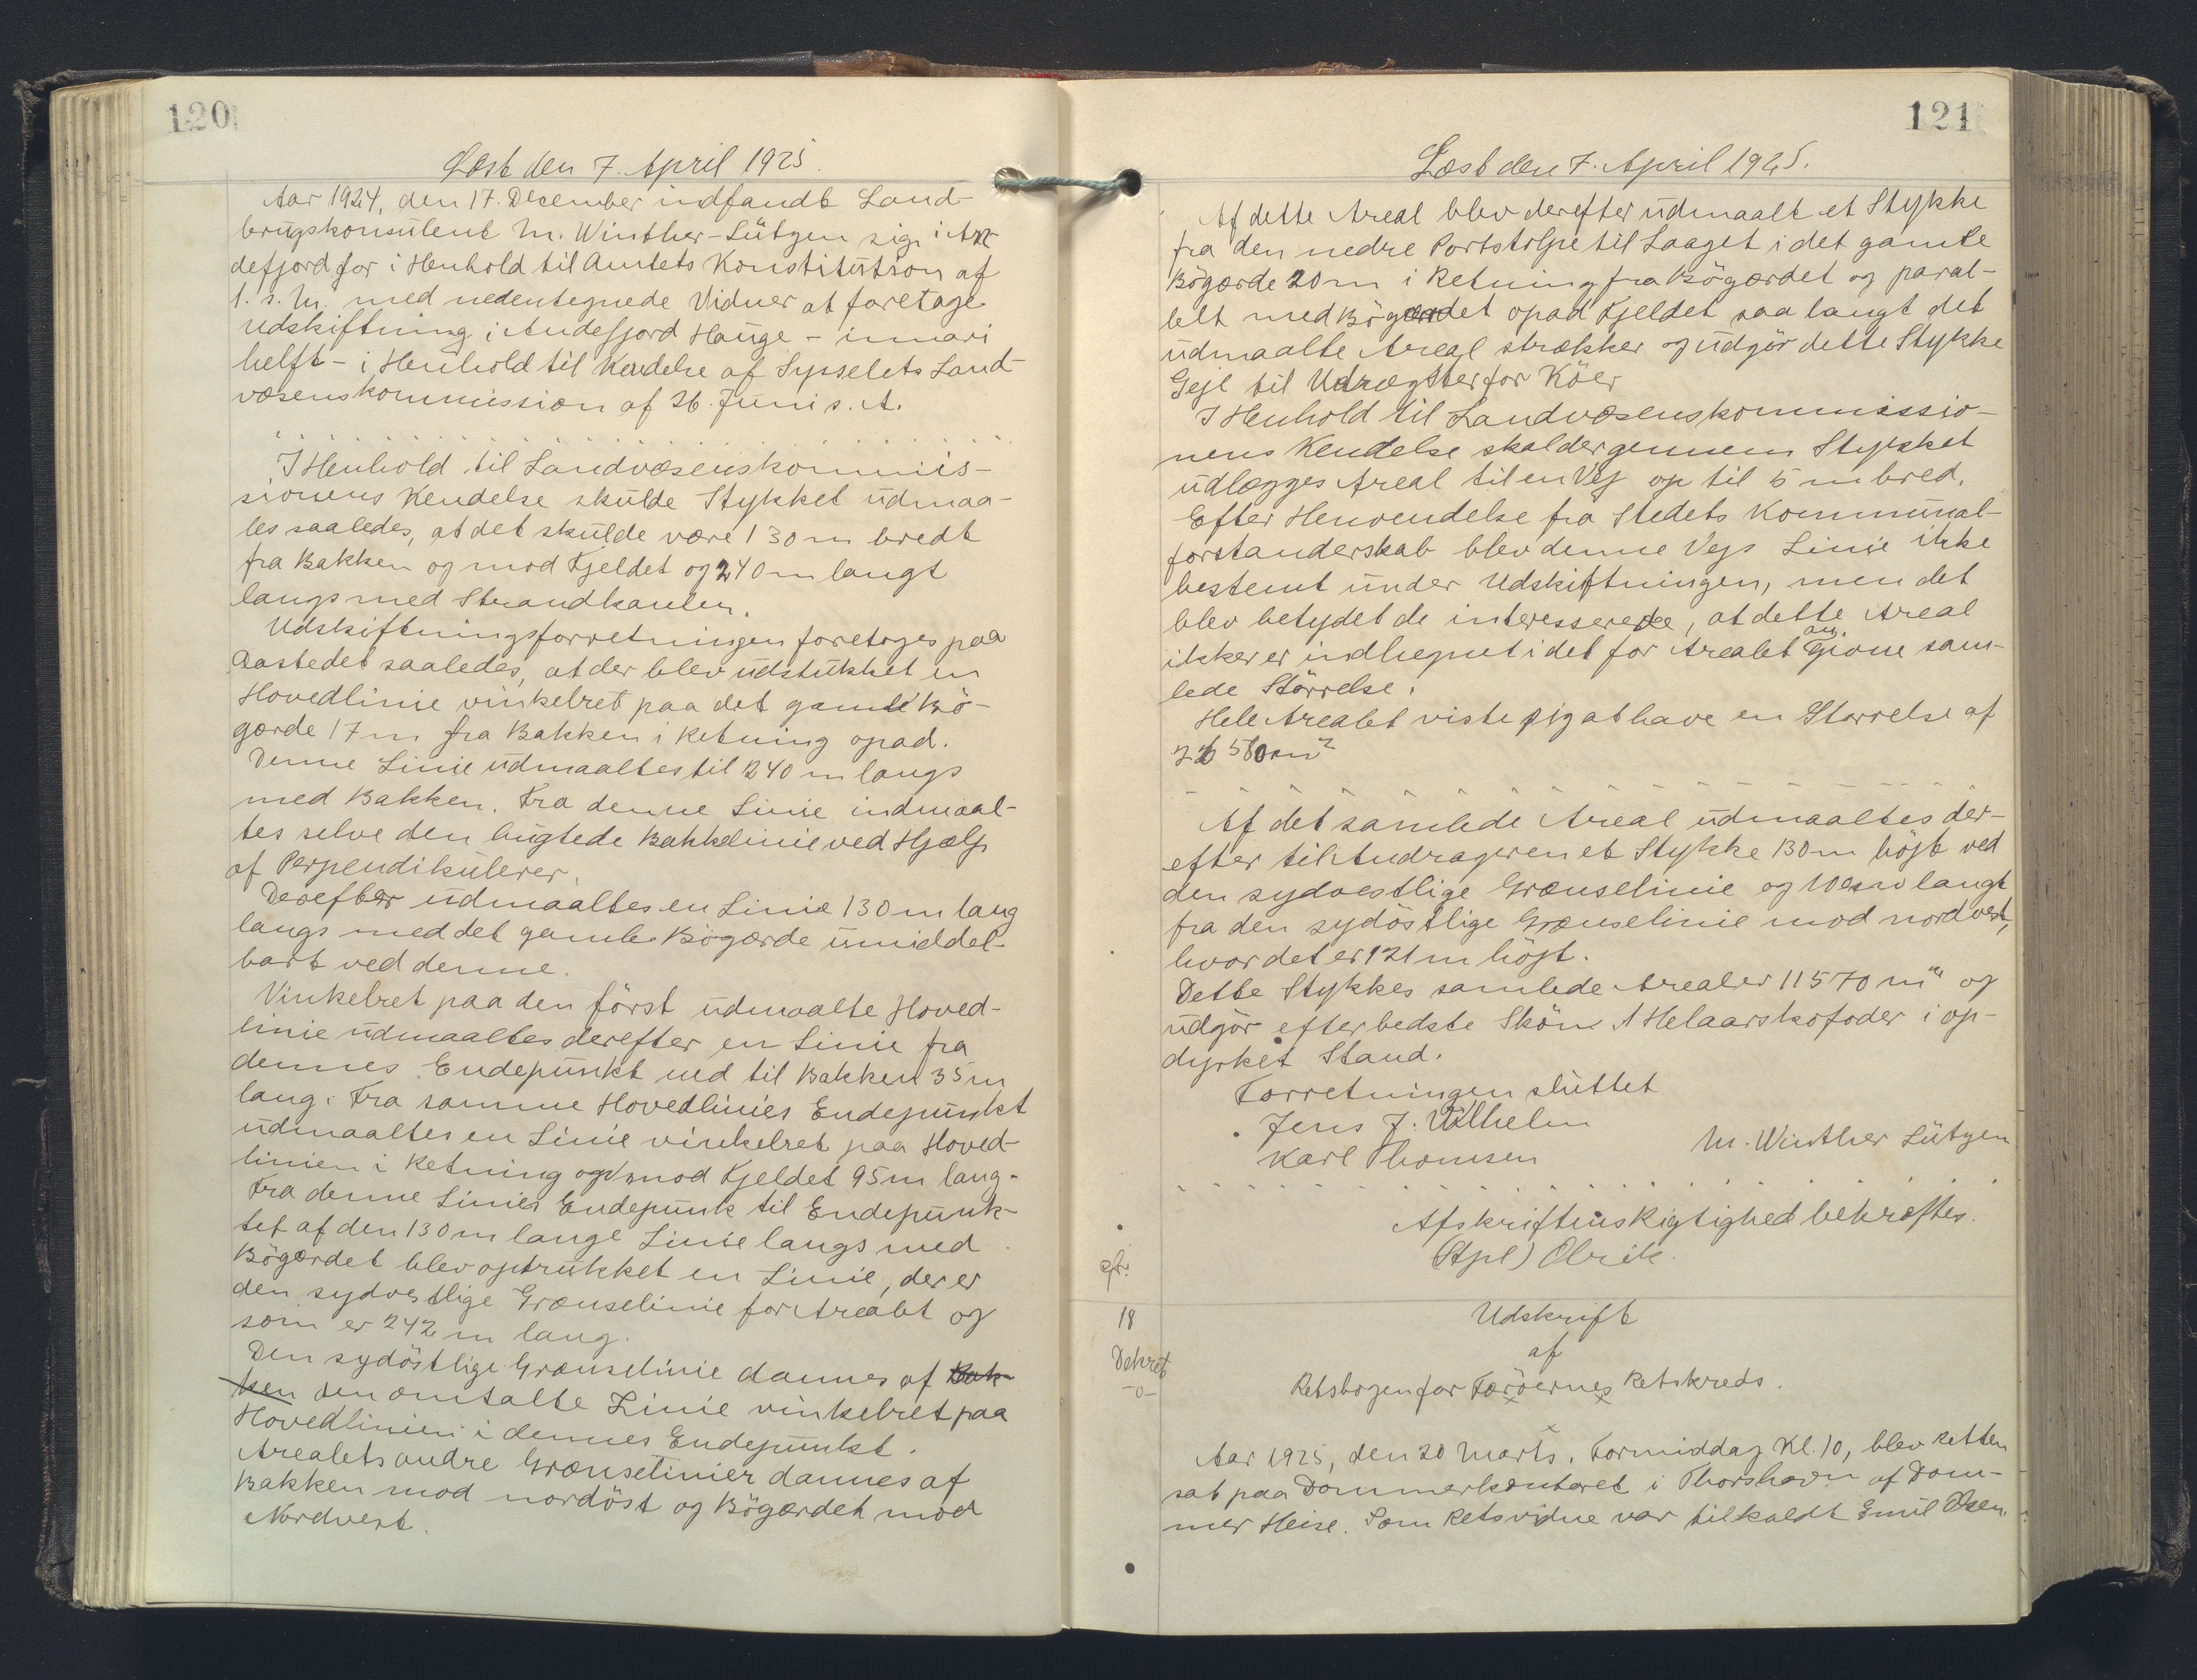 120
Læst den 7. April 1925.
Aar 1924, den 17. December indfandt Land-
brugskonsulent M. Winther-Lützen sig i An-
defjord for i Henhold til Amtets Konstitution af
1. s. M. med nedentegnede Vidner at foretage
Udskiftning i Andefjord Hauge - innari
helft - i Henhold til Kendelse af Sysselets Land-
væsenskommission af 26. Juni s. A.
I Henhold til Landvæsenskommis-
sionens Kendelse skulde Stykket udmaa-
les saaledes, at det skulde være 130 m bredt
fra Bakken og mod Fjeldet og 240 m langt
langs med Strandkanten.
Udskiftningsforretningen foretoges paa
Aastedet saaledes, at der blev udstukket en
Hovedlinie vinkelret paa det gamle Bö-
gærde 17 m fra Bakken i Retning opad.
Denne Linie udmaaltes til 240 m langs
med Bakken. Fra denne Linie indmaal-
tes selve den bugtede Bakkelinie ved Hjælp
af Perpendikulerer.
Derefter udmaaltes en Linie 130 m lang
langs med det gamle Bögærde umiddel-
bart ved denne.
Vinkelret paa den först udmaalte Hoved-
linie udmaaltes derefter en Linie fra
dennes Endepunkt ned til Bakken 35 m
lang. Fra samme Hovedlinies Endepunkt
udmaaltes en Linie vinkelret paa Hoved-
linien i Retning op mod Fjeldet 95 m lang.
Fra denne Linies Endepunk til Endepunk-
tet af den 130 m lange Linie langs med
Bögærdet blev optrukket en Linie, der er
den sydvestlige Grænselinie for Arealet og
som er 242 m lang.
Den sydöstlige Grænselinie dannes af Bak-
ken den omtalte Linie vinkelret paa
Hovedlinien i dennes Endepunkt.
Arealets andre Grænselinier dannes af
Bakken mod nordöst og Bögærdet mod
Nordvest.
121
Læst den 7. April 1925.
Af dette Areal blev derefter udmaalt et Stykke
fra den nedre Portstolpe til Laaget i det gamle
Bögærde 20 m i Retning fra Bögærdet og paral-
lelt med Bögærdet opad Fjeldet saa langt det
udmaalte Areal strækker og udgör dette Stykke
Gejl til Udrægster for Köer
I Henhold til Landvæsenskommissio-
nens Kendelse skal der gennem Stykket
udlægges Areal til en Vej op til 5 m bred.
Efter Henvendelse fra Stedets Kommunal-
forstanderskab blev denne Vejs Linie ikke
bestemt under Udskiftningen, men det
blev betydet de interesserede, at dette Areal
ikke er indhegnet i det for Arealet angivne sam-
lede Störrelse.
Hele Arealet viste sig at have en Störrelse af
26 580 m²
Af det samlede Areal udmaaltes der-
efter til Andrageren et Stykke 130 m höjt ved
den sydvestlige Grænselinie og langt
fra den sydöstlige Grænselinie mod nordvest,
hvor det er 121 m höjt.
Dette Stykkes samlede Areal er 11570 m² og
udgör efter bedste Skön 1 Helaarskofoder i op-
dyrket Stand.
Forretningen sluttet
Jens J. Vilhelm
M. Winther Lützen
Karl Thomsen
Afskriftens Rigtighed bekræftes.
(Stpl) Olrik.
18
Dekret
-0-
Udskrift
af
Retsbogen for Færöernes Retskreds.
Aar 1925, den 20 Marts, Formiddag Kl. 10, blev Retten
sat paa Dommerkontoret i Thorshavn af Dom-
mer Heise. Som Retsvidne var tilkaldt Emil Olsen